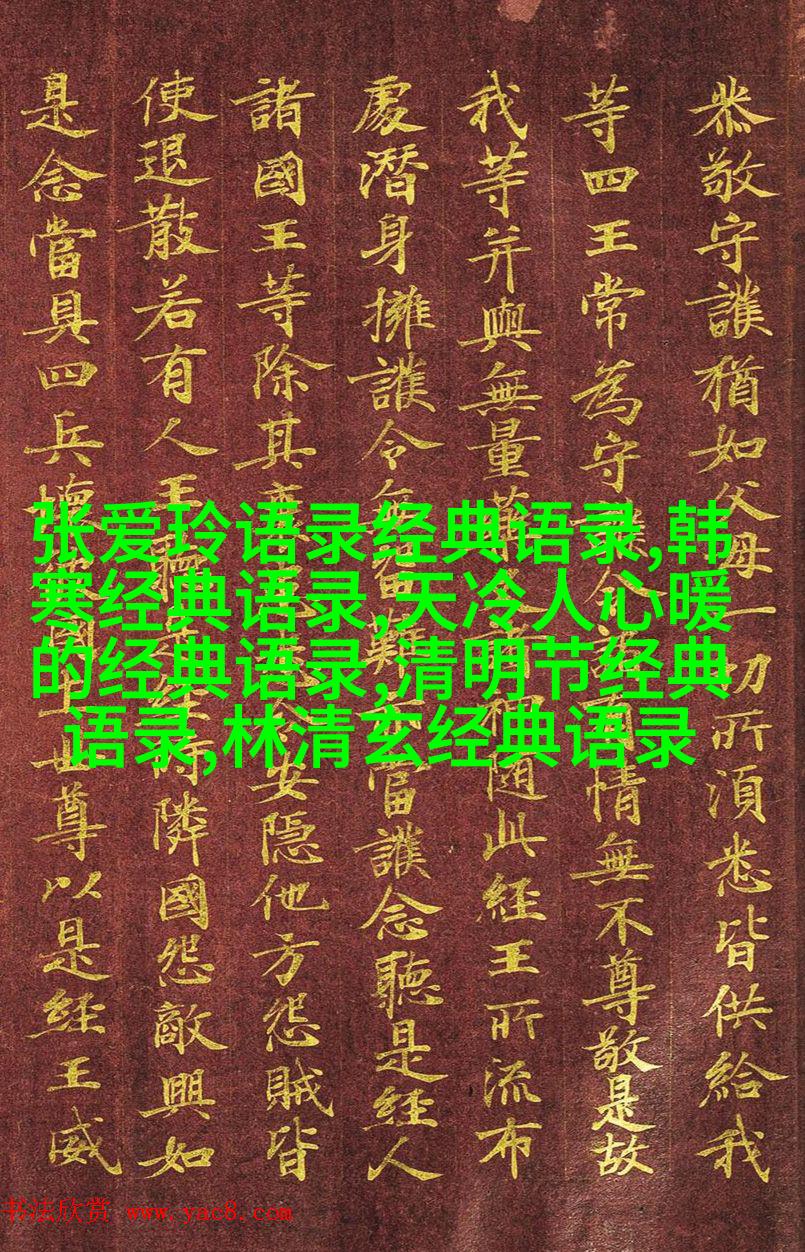 恭敬守護猶如父母一切所須悉皆供給我
等四王常為守護令諸有情無不尊敬是故
我等并與無量藥叉諸神隨此經王所流布
處潛身擁護令無留難亦當護念聽是經人
諸國王等除其衰患悉令安隱他方怨賊皆
使退散若有人王聽是經時隣國怨敵興如
是念當具四兵壞彼國土世尊以是經王威
张爱玲语录经典语录,韩
寒经典语录,天冷人心暖
的经典语录,清明节经典
语录,林清玄经典语录
书法欣赏 www.yac8.com